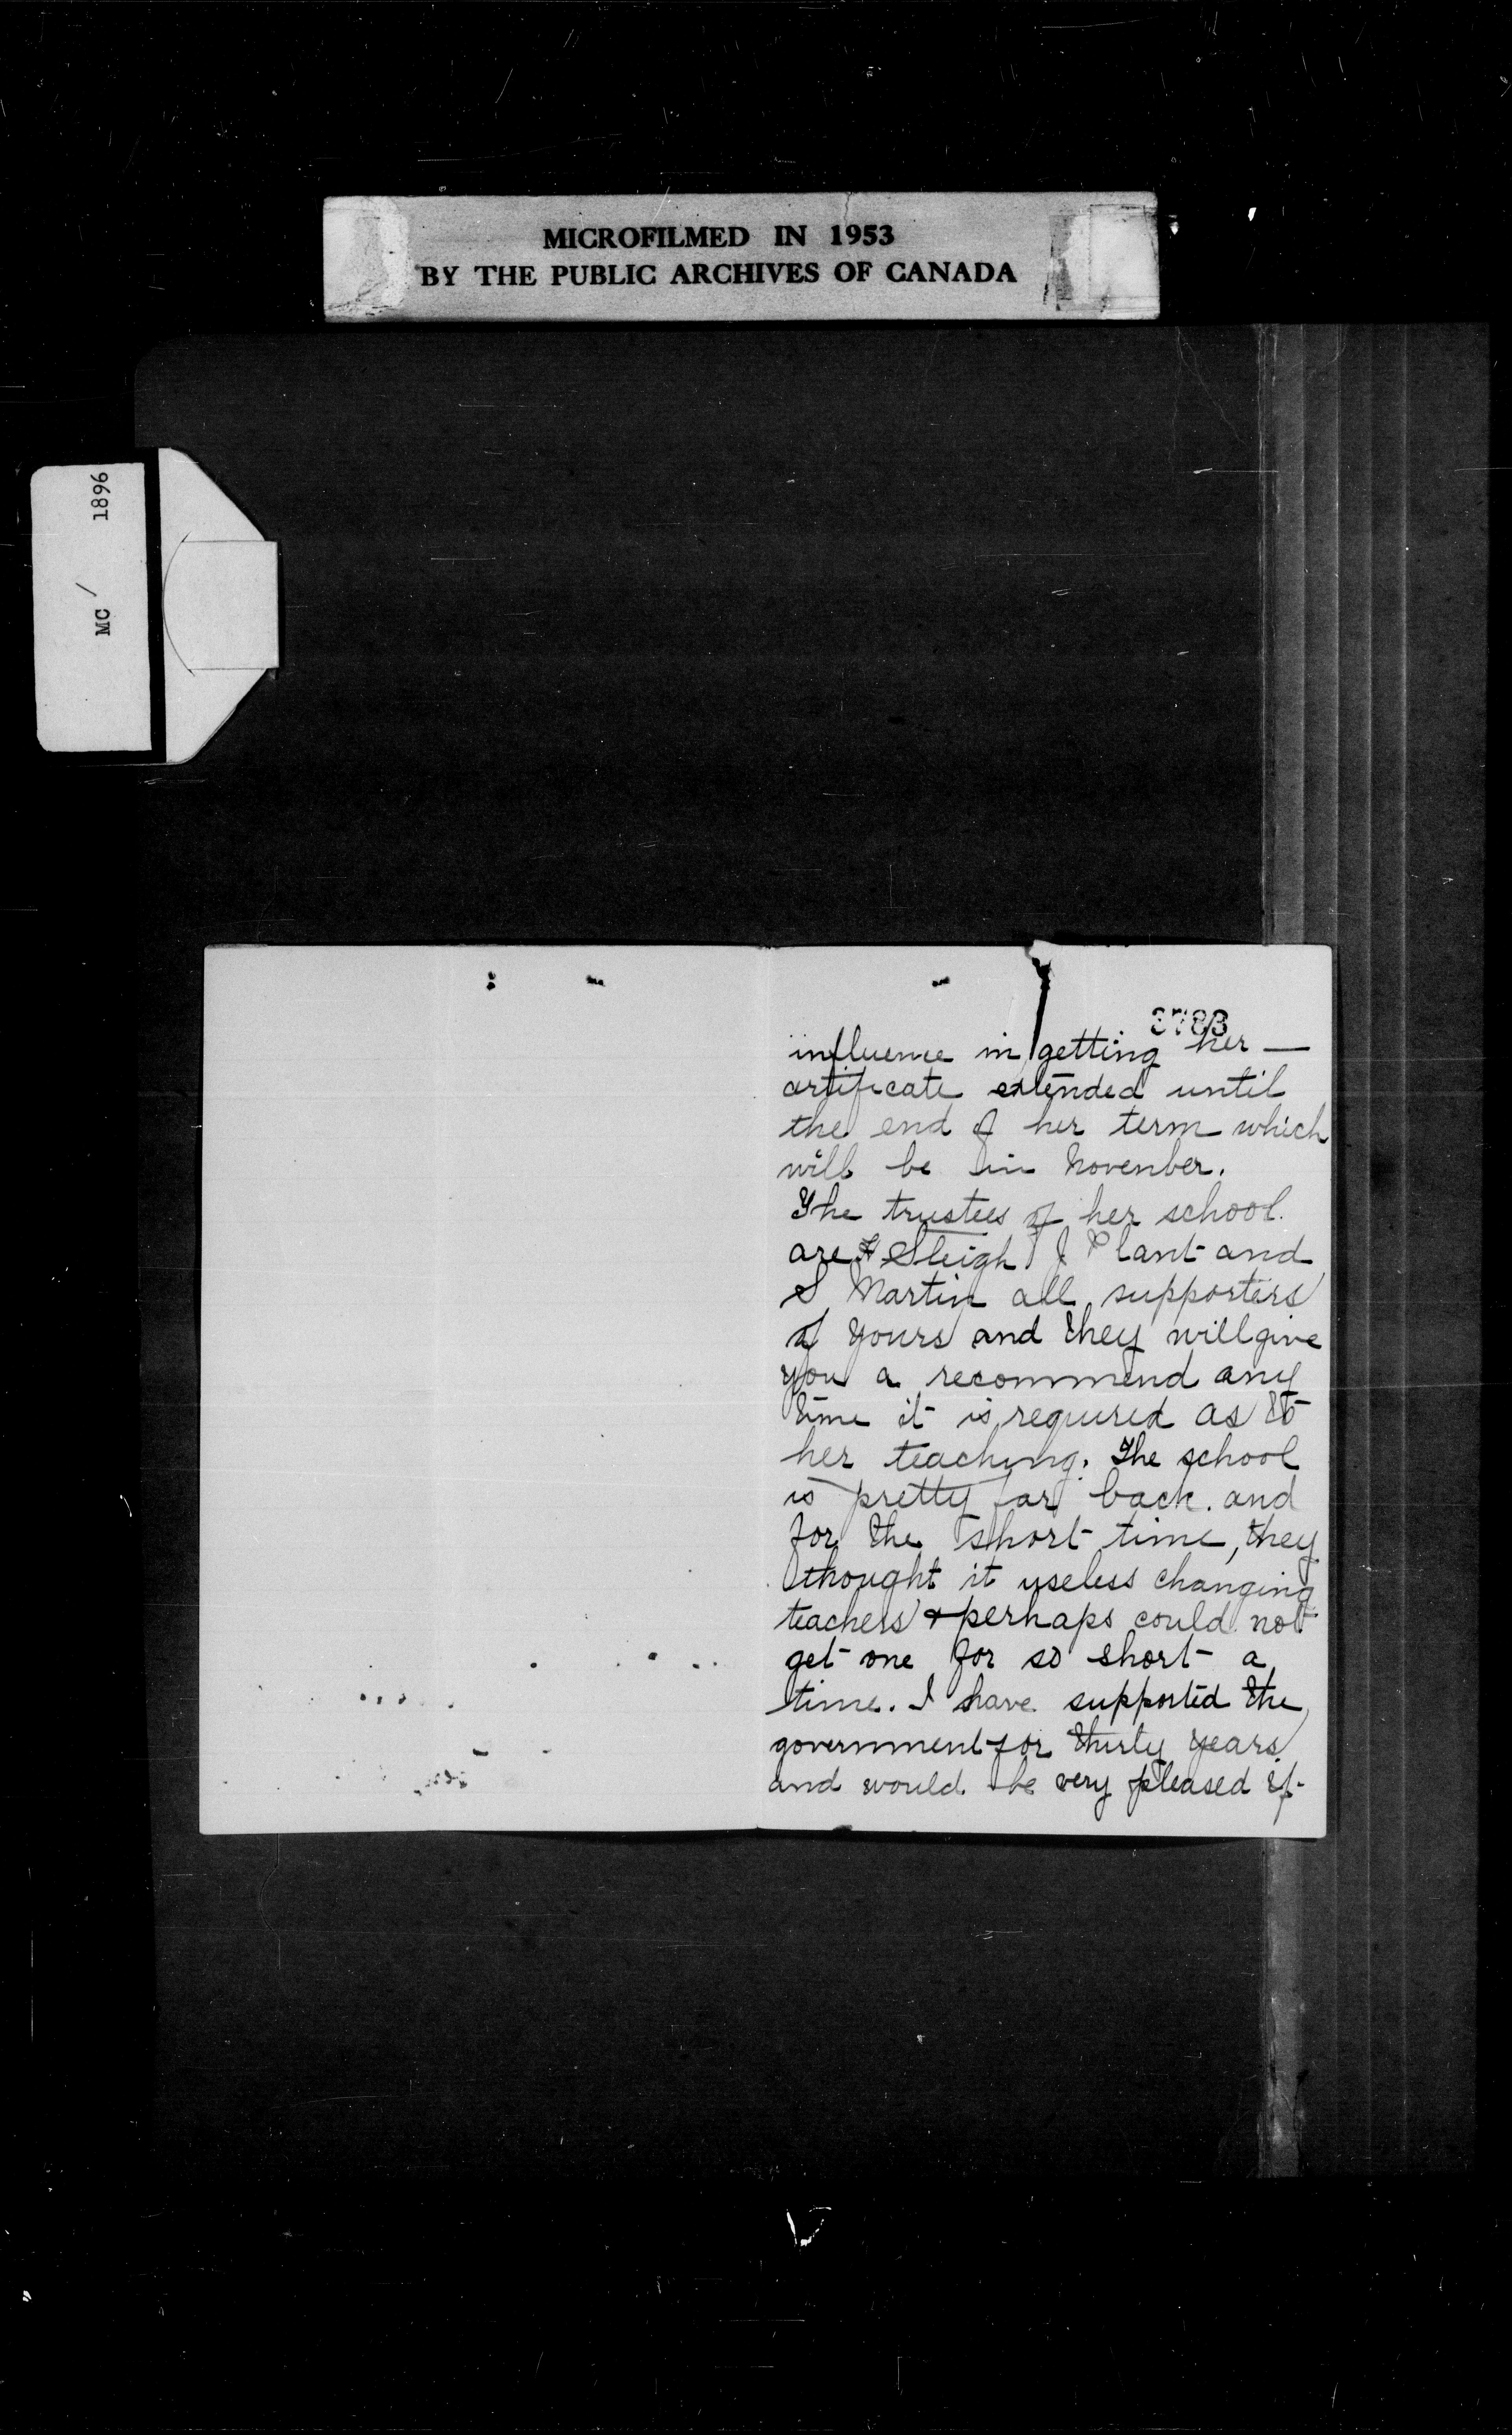 MICROFILMED IN 1953
BY THE PUBLIC ARCHIVES OF CANADA
MC / 1896
3783
influence in getting her —
certificate extended until
the end of her term which
will be in November.
The trustees of her school.
are H Sleigh J Plant and
S Martin all supporters
of yours and they will give
you a recommend any
time it is required as to
her teaching. The school
is pretty far back. and
for the short time, they
thought it useless changing
teachers & perhaps could not
get one for so short a
time. I have supported the
government for thirty years
and would be very pleased if